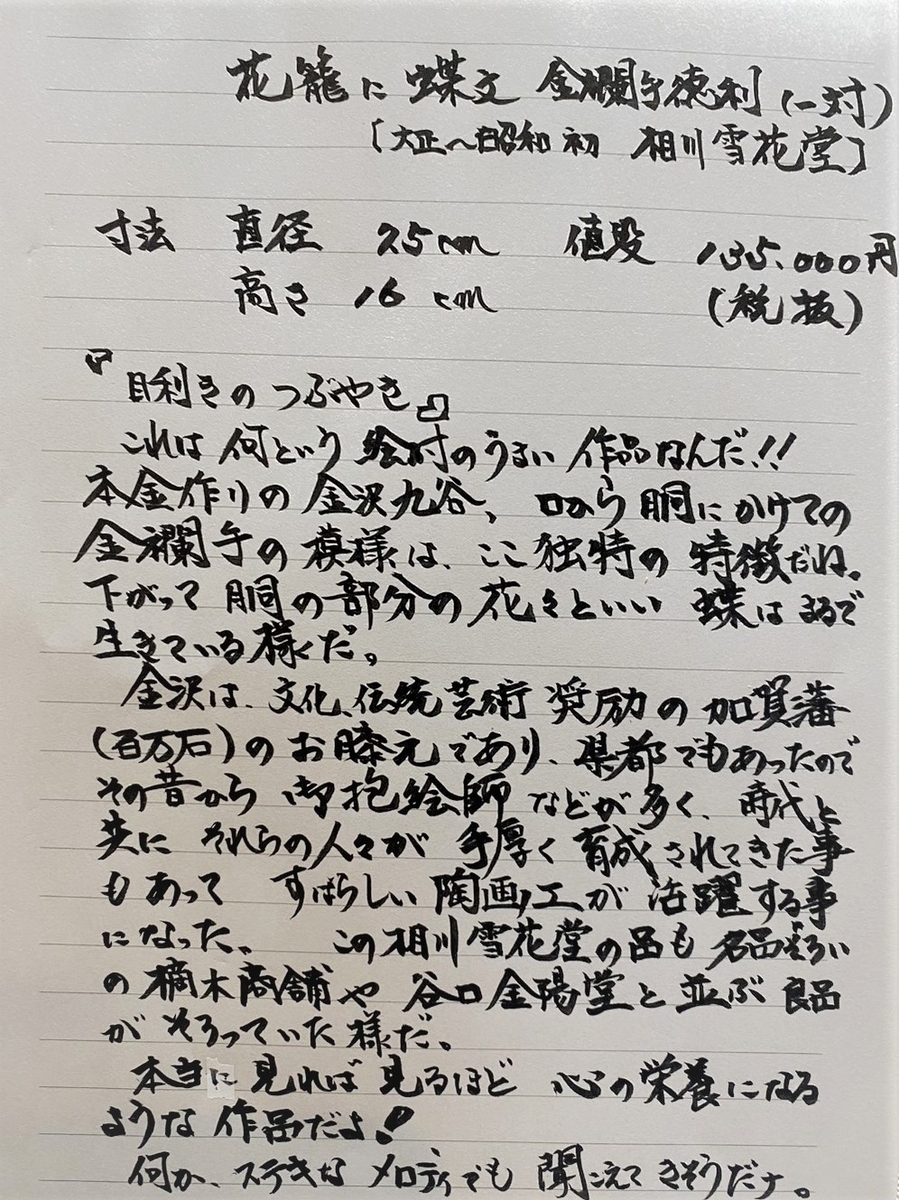 花籠に蝶文 金襴手徳利(一対)
[大正〜昭和初 相川雪花堂]
寸法 直径 7.5cm 値段 135.000円
高さ 16cm (税抜)
『目利きのつぶやき』
これは何という絵付のうまい作品なんだ!!
本金作りの金沢九谷、口から胴にかけての
金襴手の模様は、ここ独特の特徴だね。
下がって胴の部分の花々といい蝶はまるで
生きている様だ。
金沢は、文化、伝統芸術奨励の加賀藩
(百万石)のお膝元であり、県都でもあったので
その昔から御抱絵師などが多く、時代と
共にそれらの人々が手厚く育成されてきた事
もあって すばらしい陶画工が活躍する事
になった、 この相川雪花堂の品も名品ぞろい
の橋本商舗や谷口金陽堂と並ぶ良品
がそろっていた様だ。
本当に見れば見るほど心の栄養になる
ような作品だよ!
何か、ステキなメロディでも聞こえてきそうだナ。